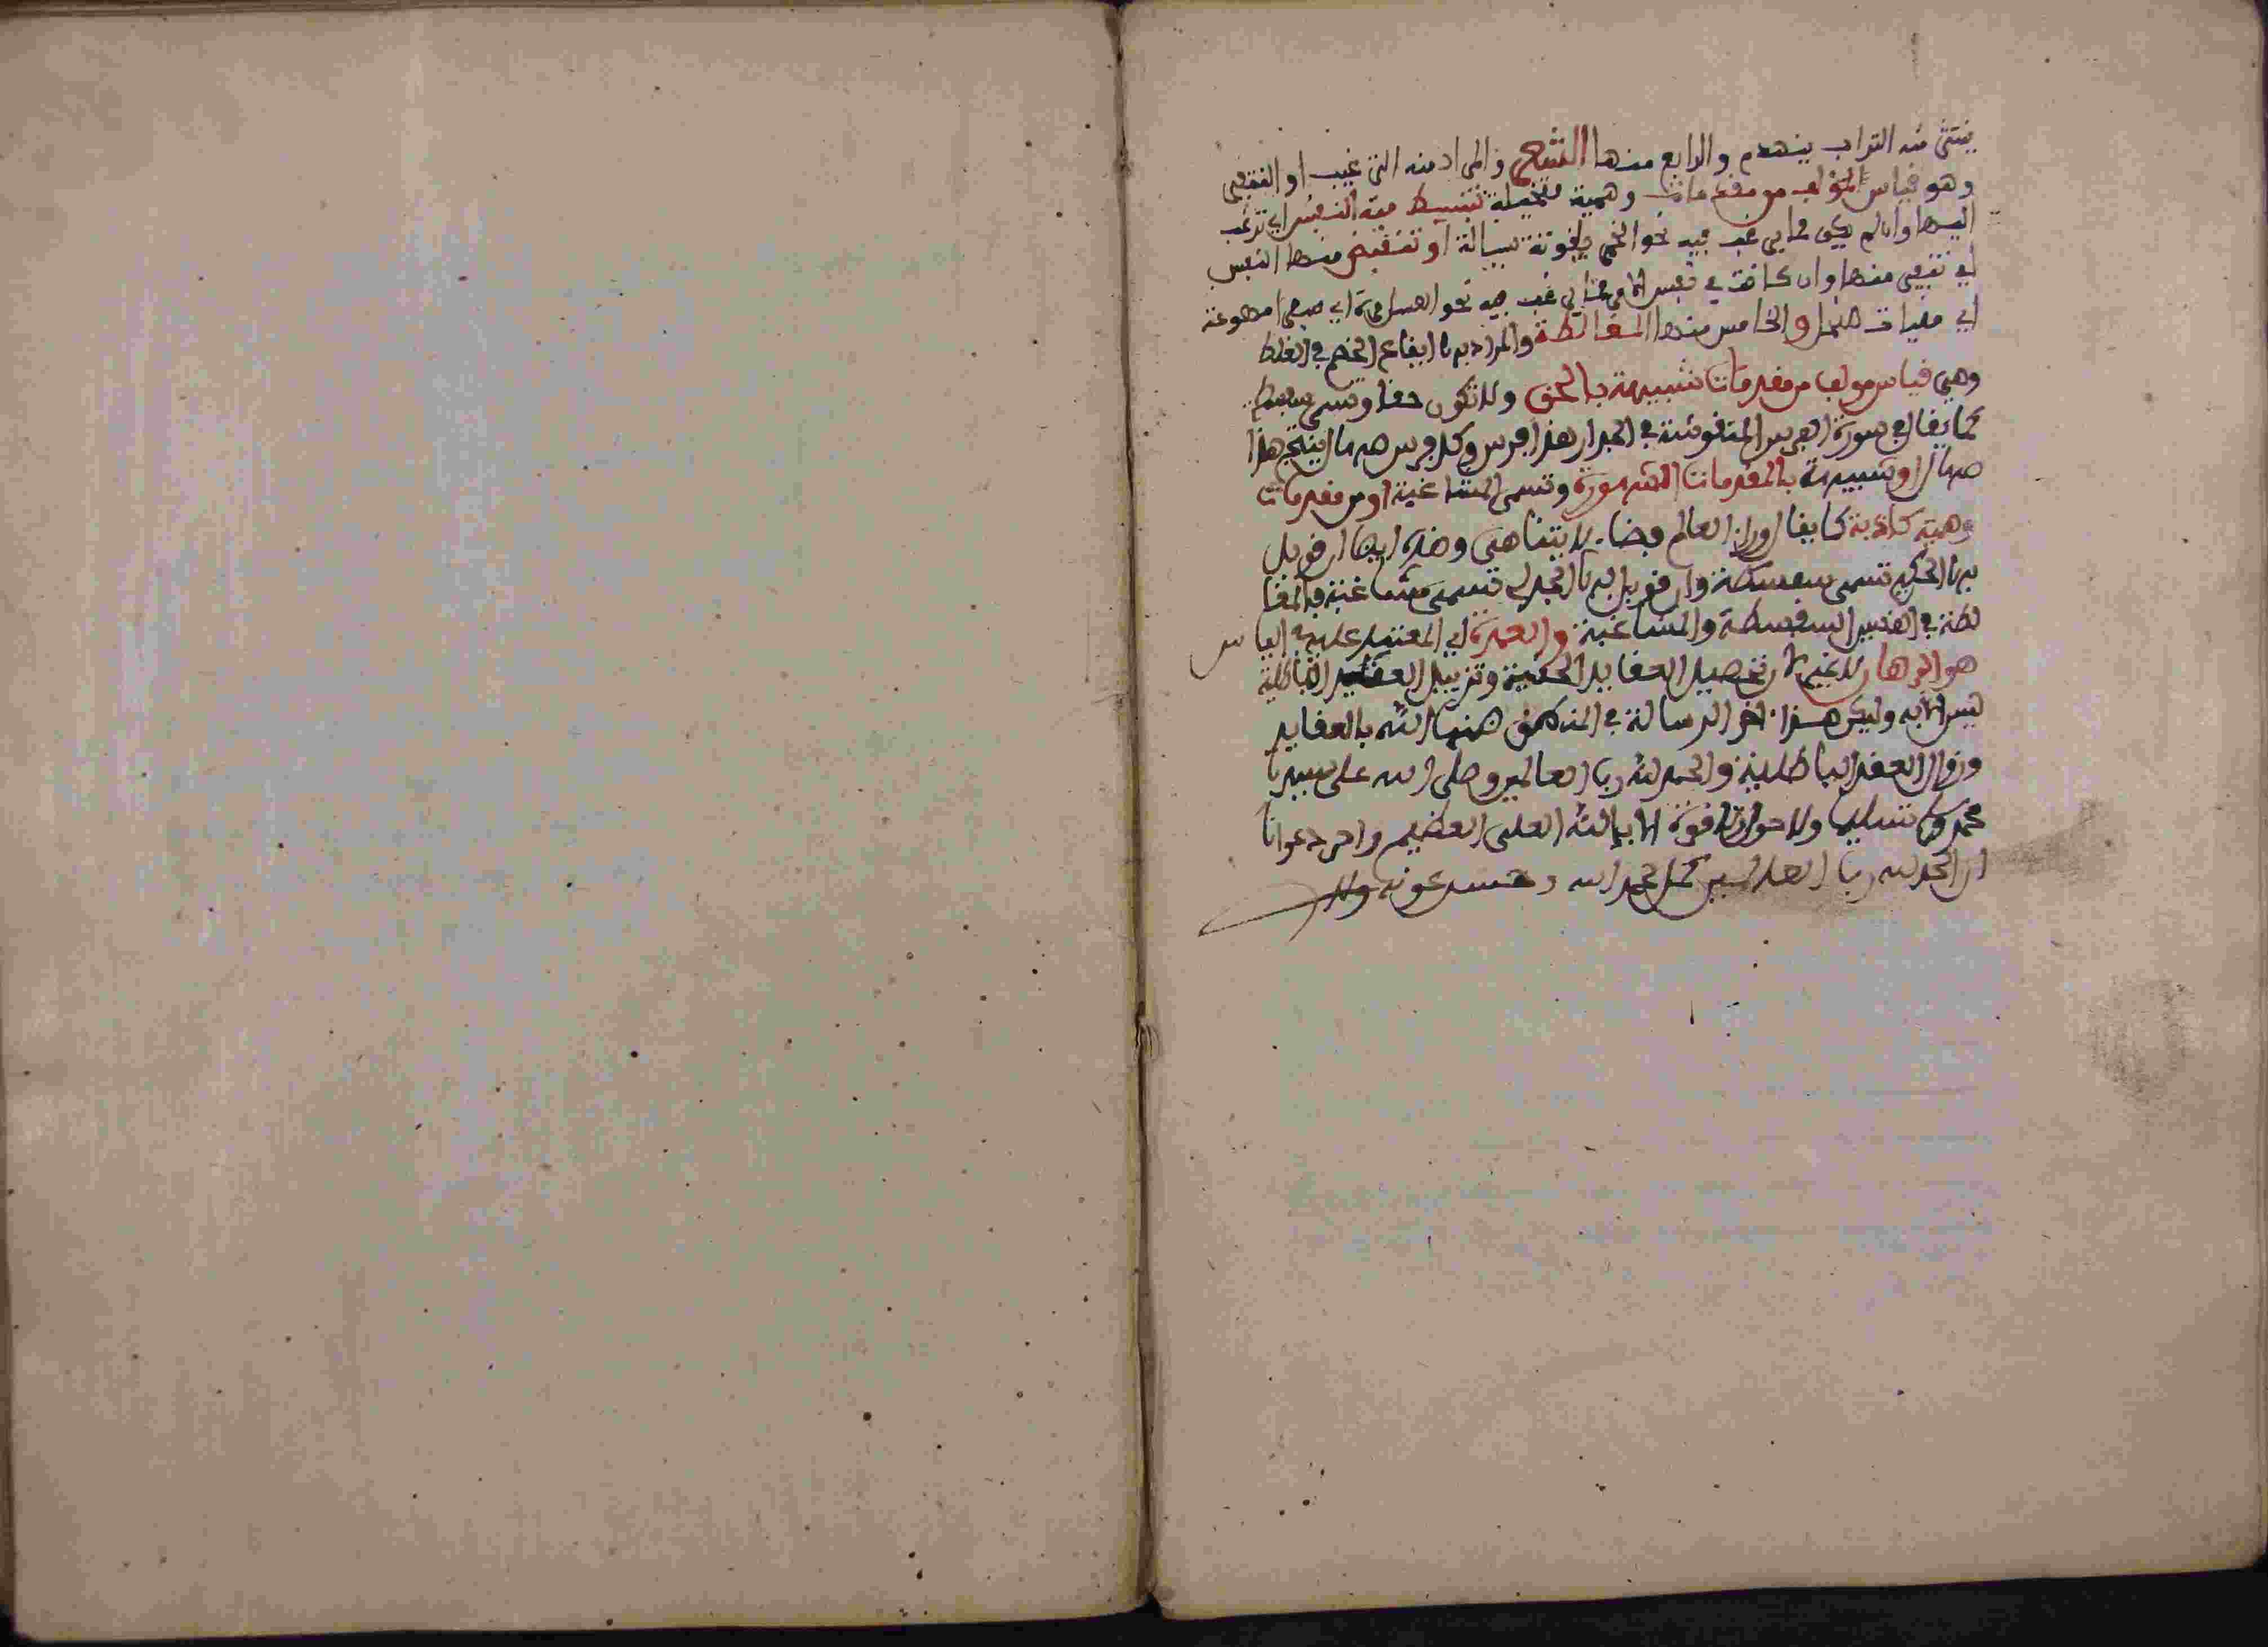 ينتثر منه التراب ينهدم والرابع منها الشعر والمراد منه الترغيب او التنفير
وهو قياس المؤلف من مقدمات وهمية متخيلة تنبسط منه النفس اي ترغب
اليها وان لم يكن مما يرغب فيه نحو الخمر ياقوتة سيالة او تنقبض منها النفس
اي تنفر منها وان كانت في نفس الامر مما يرغب فيه نحو العسل مرة اي صفرا مهوعة
اي مقيات والخامس منها المغالطة والمراد بها ايقاع الخصم في الغلط
وهي قياس مولف من مقدمات شبيهة بالحق ولا تكون حقا وتسمى سفسطة
كما يقال في صورة الفرس المنقوشة في الجدار هذا فرس وكل فرس صهال ينتج هذا
صهال او شبيهة بالمقدمات المشهورة وتسمى المشاغبة او من مقدمات
وهمية كاذبة كما يقال وراء العالم فضاء لا يتناهى وهذه ايضا ان قوبل
بها الحكيم تسمى سفسطة وان قوبل بها الجدلي تسمى مشاغبة فالمغا
لطة في القسمين السفسطة والمشاغبة والعمدة اي المعتمد عليه في الباس
هو البرهان لا غيره لان تحصيل العقايد الحقية وتزييل العقايد الباطلية
ليس الا به وليكن هذا اخر الرسالة في المنطق هنها الله بالعقايد
وزوال العقد الباطلية والحمد لله رب العالمين وصلى الله على سيدنا
محمد وسلم تسليما ولا حول ولا قوة الا بالله العلي العظيم واخر دعوانا
ان الحمد لله رب العالمين كمل بحمد الله وحسن عونه